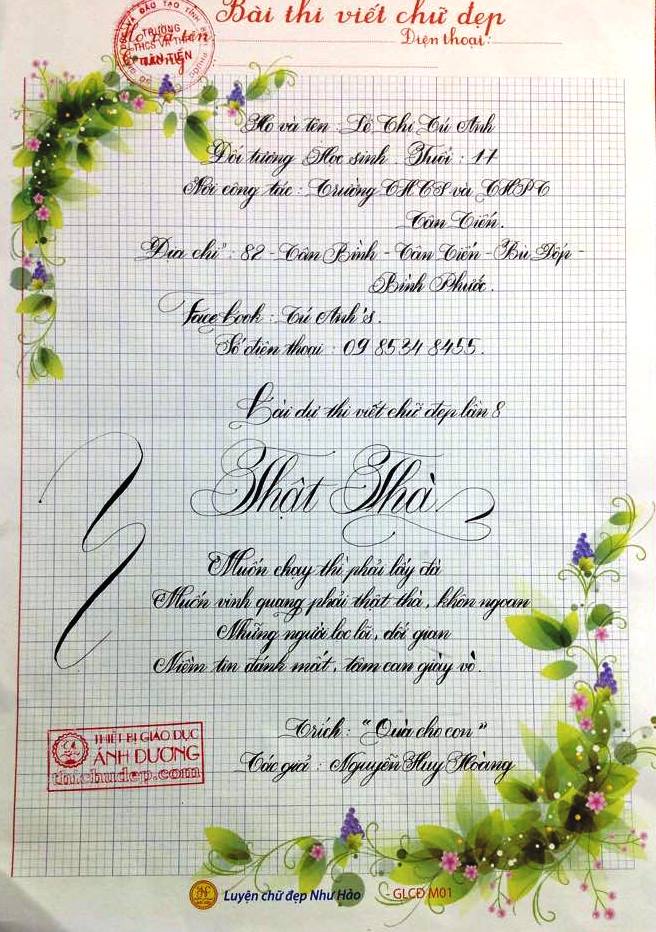 Bài thi viết chữ đẹp
Họ và tên
Điện thoại:
TRƯỜNG
THCS VÀ THPT
TÂN TIẾN
Họ và tên : Lê Thị Tú Anh
Đối tượng Học sinh . Tuổi : 17
Nơi công tác : Trường THCS và THPT
Tân Tiến .
Địa chỉ : 82 - Tân Bình - Tân Tiến - Bù Đốp -
Bình Phước .
Facebook : Tú Anh's .
Số điện thoại : 09 8534 8455 .
Bài dự thi viết chữ đẹp lần 8
Thật Thà
Muốn chạy thì phải lấy đà
Muốn vinh quang phải thật thà , khôn ngoan
Những người lọc lõi , dối gian
Niềm tin đánh mất , tâm can giày vò .
Trích : “ Quà cho con ”
Tác giả : Nguyễn Huy Hoàng
THIẾT BỊ GIÁO DỤC
ÁNH DƯƠNG
tmchudep.com
Luyện chữ đẹp Như Hảo
GLCĐ M01